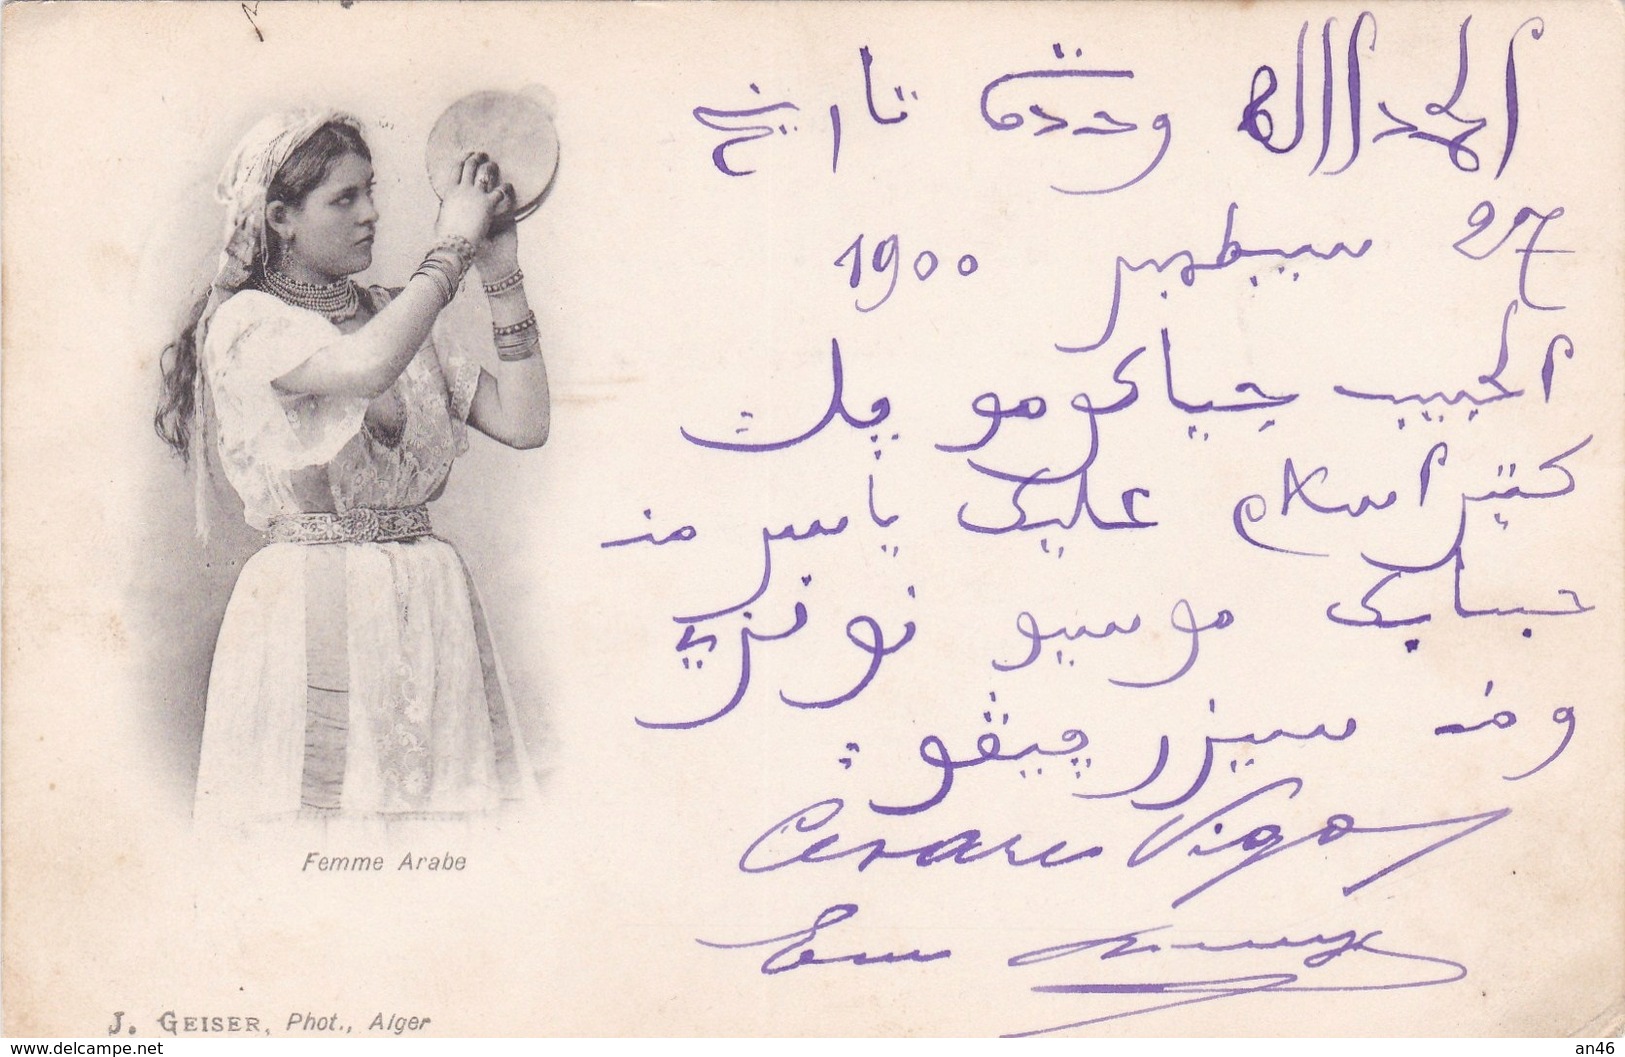 الحمد الله وحده تاريخ
27 سبطمبر 1900
الحبيب جياكومو
كثير اسلام عليك ياسر من
موسيو نونزي
و من سيزر ڥيڨو
Cesare Vigo
Em
Femme Arabe
J. GEISER, Phot., Alger
www.delcampe.net
an46